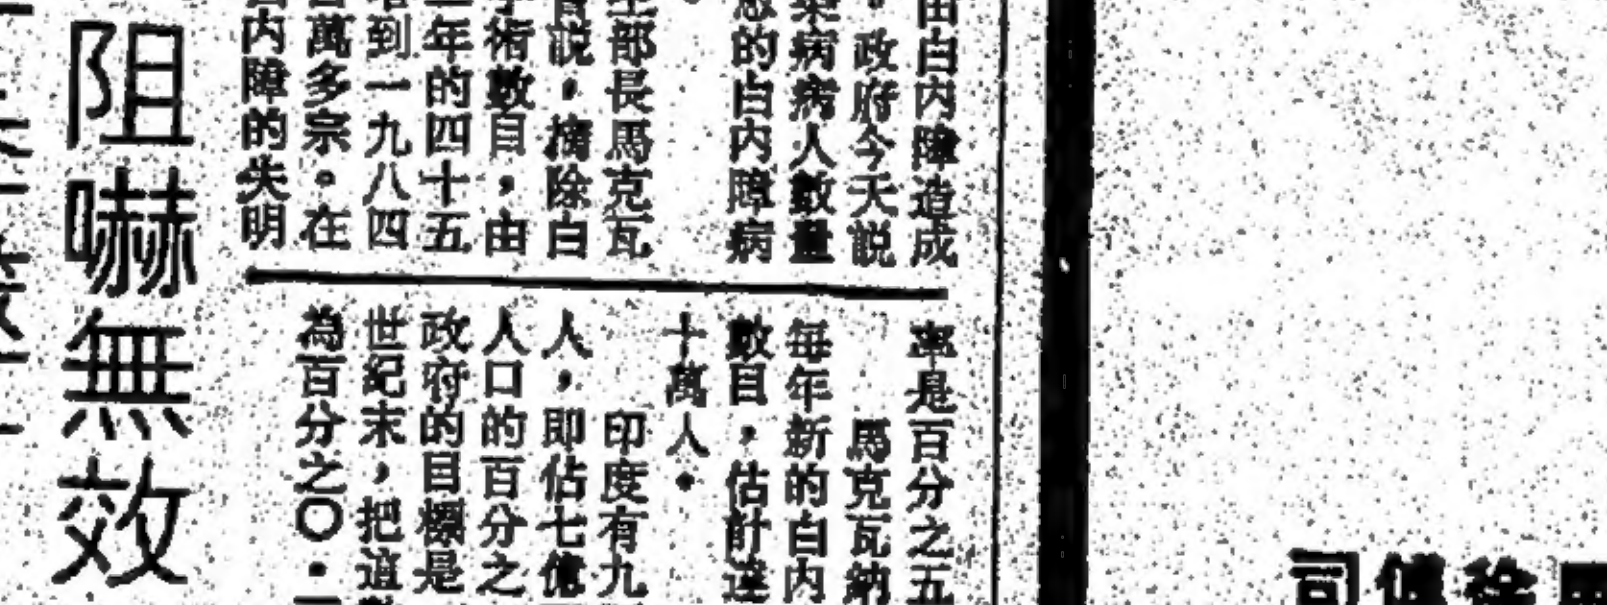 由白内障造成
，政府今天説
病病人數量
的白内障病
部長馬克瓦
説，摘除白
術數目，由
年的四十五
到一九八四
萬多宗。在
内障的失明
率是百分之五
馬克瓦納
每年新的白内
數目，估計達
十萬人。
印度有九
人，即佔七億
人口的百分之
政府的目標是
世紀末，把這
為百分之〇・
阻嚇無效
司